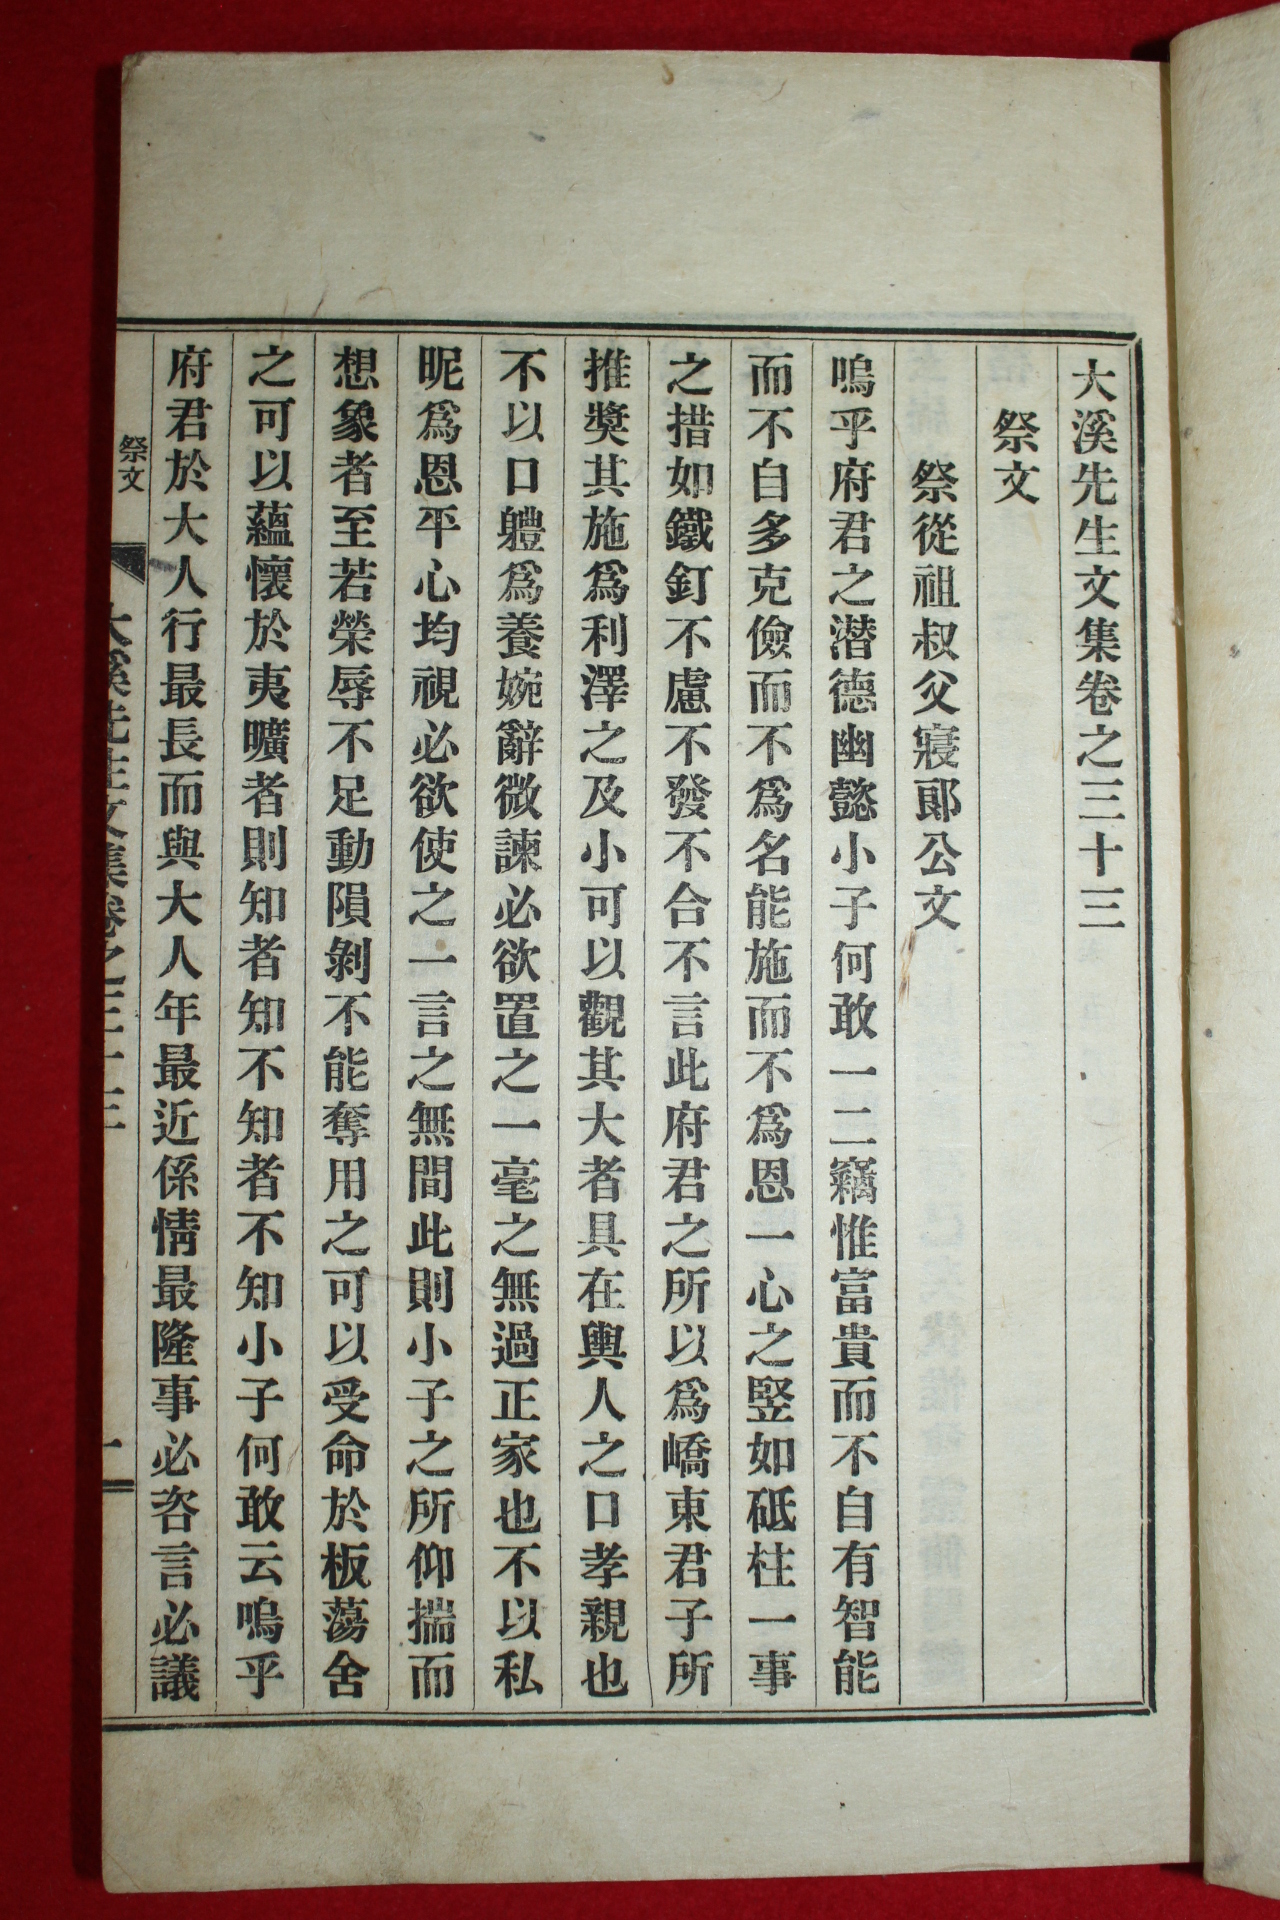 大溪先生文集卷之三十三
祭文
祭從祖叔父寢郞公文
嗚乎府君之潛德幽懿小子何敢一二竊惟富貴而不自有智能
而不自多克儉而不爲名能施而不爲恩一心之竪如砥柱一事
之措如鐵釘不慮不發不合不言此府君之所以爲嶠東君子所
推奬其施爲利澤之及小可以觀其大者具在輿人之口孝親也
不以口軆爲養婉辭微諫必欲置之一毫之無過正家也不以私
昵爲恩平心均視必欲使之一言之無間此則小子之所仰揣而
想象者至若榮辱不足動隕剝不能奪用之可以受命於板蕩舍
之可以蘊懷於夷曠者則知者知不知者不知小子何敢云嗚乎
府君於大人行最長而與大人年最近係情最隆事必咨言必議
祭文
大溪先生文集卷之三十三
一